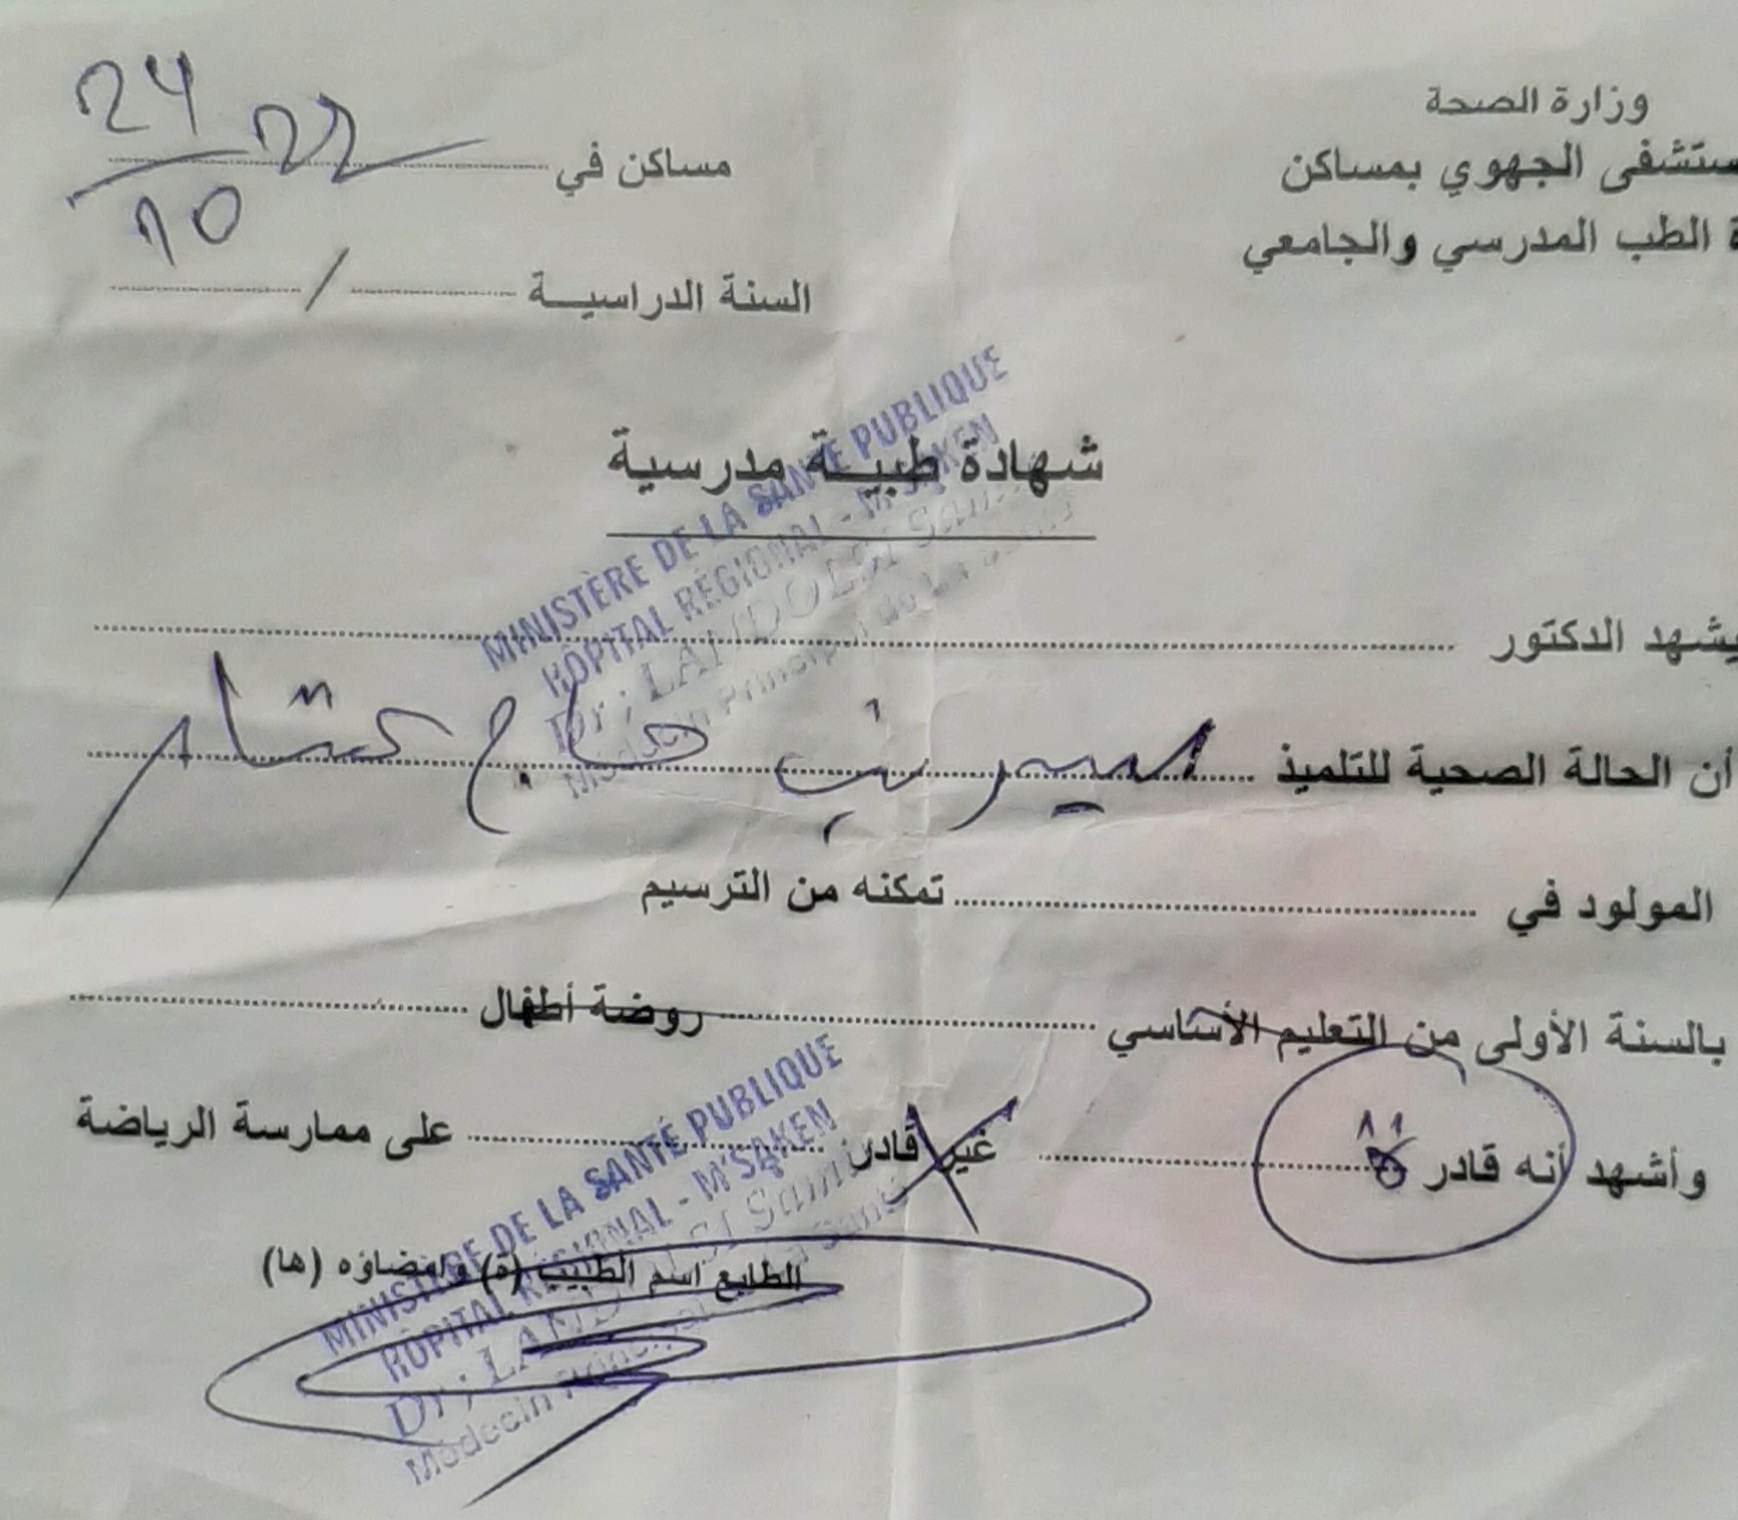 وزارة الصحة
ستشفى الجهوي بمساكن
ة الطب المدرسي والجامعي
مساكن في 24/10 22
السنة الدراسيـــة /
شهادة طبيـــة مدرسية
MINISTÈRE DE LA SANTÉ PUBLIQUE
HÔPITAL RÉGIONAL - M'SAKEN
يشهد الدكتور
أن الحالة الصحية للتلميذ حاج
المولود في تمكنه من الترسيم
بالسنة الأولى من التعليم الأساسي روضة أطفال
وأشهد أنه قادر ة غير قادر على ممارسة الرياضة
الطابع اسم الطبيب (ة) وإمضاؤه (ها)
MINISTÈRE DE LA SANTÉ PUBLIQUE
HÔPITAL RÉGIONAL - M'SAKEN
Dr ;
Médecin Principal